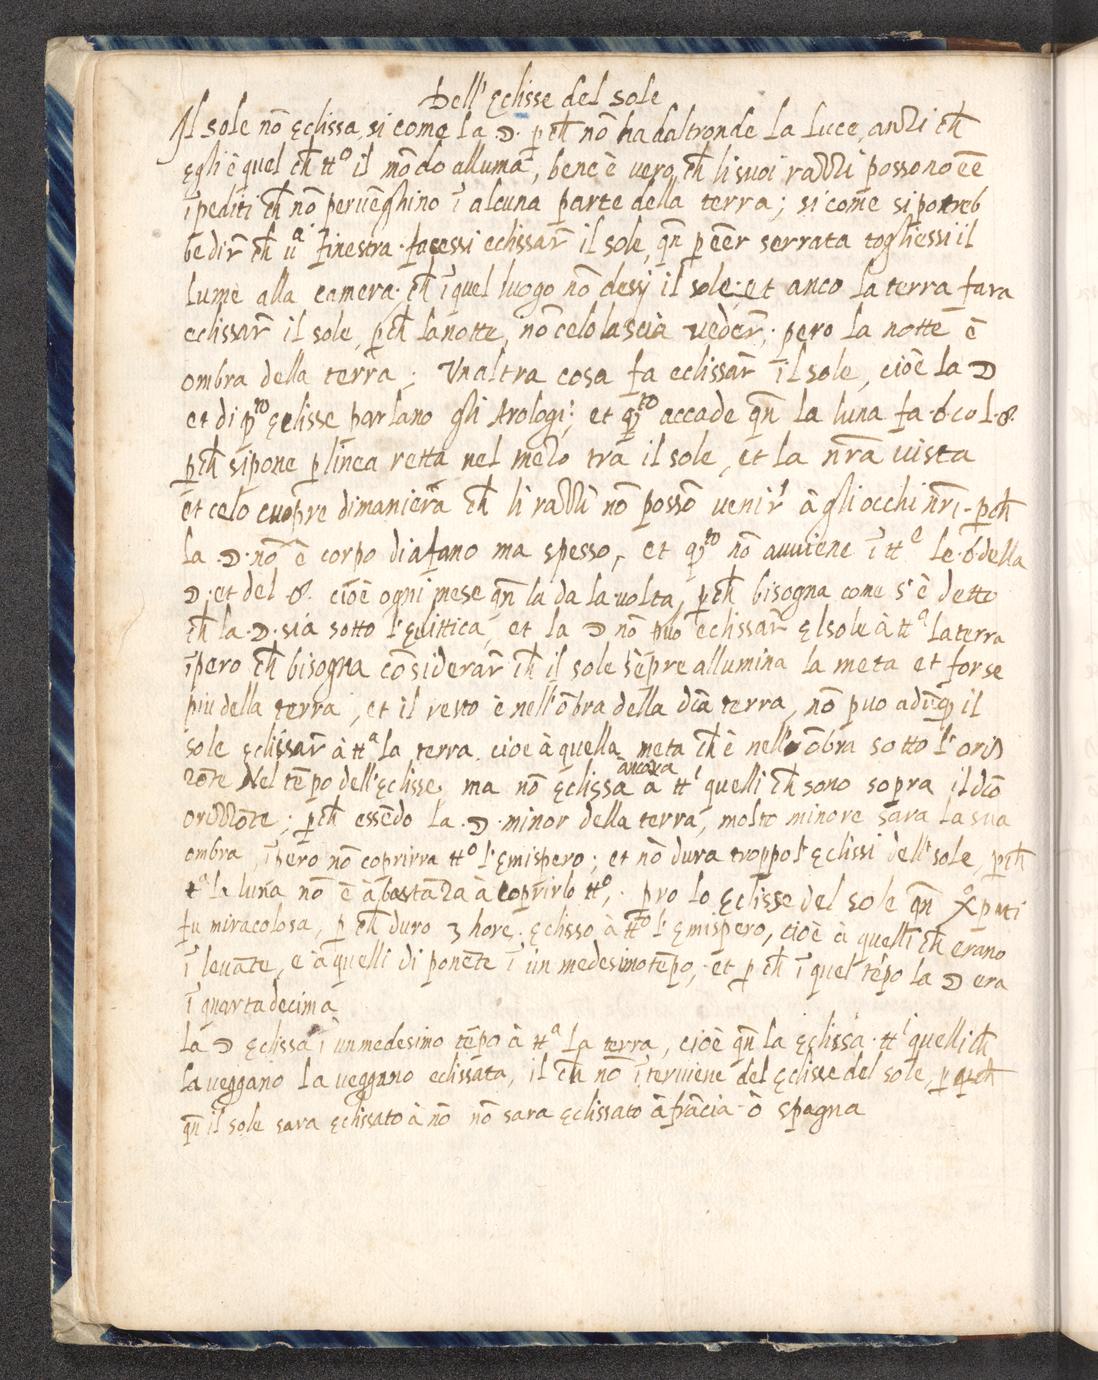 Dell'Eclisse del sole
Il sole nõ Eclissa, si come la ☽· p̱ch̃ nõ ha daltronde la luce, anzi ch̃
Egli è quel ch̃ ttº il mõdo alluma, benc è vero, ch̃ li suoi razzi possono eẽ
ĩpediti ch̃ nõ peruẽghino ĩ alcuna parte della terra; si come si potreb
be dir̃ ch̃ uª finestra facessi eclissar̃ il sole, qñ p̱ eẽr serrata togliessi il
lume alla camera· ch̃ ĩ quel luogo nõ dessj il sole: et anco la terra fara
eclissar̃ il sole, p̱ch̃ la notte, nõ celo lascia veder̃; pero la notte è
ombra della terra; Vnaltra cosa fa eclissar̃ il sole, cioè la ☽
et di q̃ᵗᵒ Eclisse parlano gli Arologi; et q̃ᵗᵒ accade qñ la luna fa ☌ co l ☉·
p̱ch̃ si pone p̱ linea retta nel mezo tra il sole, et la nr̃a vista
et celo cuopre di maniera ch̃ li razzi nõ possõ venir' à gli occhi nr̃i· p̱ch̃
la ·☽· nõ è corpo diafano ma spesso, et q̃ᵗᵒ nõ avviene ĩ ttᵉ le ·☌· della
☽· et del ☉· cioè ogni mese qñ la da la uolta, p̱ch̃ bisogna come s'è detto
ch̃ la ·☽· sia sotto l'Eclittica, et la ☽ nõ può eclissar̃ El sole à ttª la terra
ĩpero ch̃ bisogna cõsiderar̃ ch̃ il sole sẽpre allumina la meta et forse
piu della terra, et il resto è nell'õbra della dc̃a terra, nõ puo adũq̃ il
sole eclissar̃ à ttª la terra, cioè à quella meta ch̃ è nell'õbra sotto l'oriz
zõte Nel tẽpo dell'Eclisse, ma nõ Eclissa ancora à ttⁱ quelli ch̃ sono sopra il dc̃o
orizzõte; p̱ch̃ essẽdo la ·☽· minor della terra, molto minore sara la sua
ombra, ĩpero nõ coprirra ttº l'Emispero; et nõ dura troppo l'Eclissi dell' sole, p̱ch̃
tª la luna nõ è à bastãza à coprirlo ttº; · pro lo Eclisse del sole qñ Xº patì
fu miracolosa, p̱ch̃ duro 3 hore· Eclisso à ttº l'Emispero, cioè à quelli ch̃ erano
ĩ levãte, e à quelli di ponẽte ĩ un medesimo tẽpo, et p̱ch̃ ĩ quel tẽpo la ☽ era
ĩ quartadecima
La ☽ Eclissa ĩ un medesimo tẽpo à ttª la terra, cioè qñ la Eclissa· ttⁱ quelli ch̃
la veggano la veggano eclissata, il ch̃ nõ ĩteruiene del Eclisse del sole, p̱ch̃
qñ il sole sara Eclissato à nõ nõ sara Eclissato à frãcia ò spagna